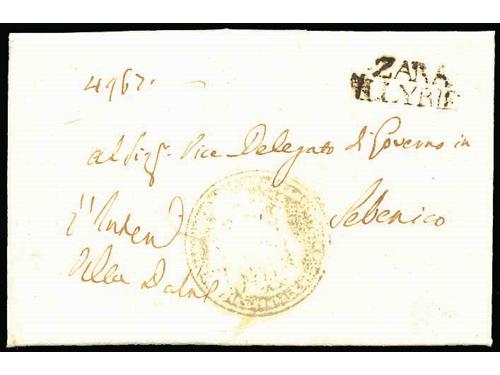 ZARA
ILLYRIE
4962.
al Sigr. Vice Delegato di Governo in
Sebenico
L'Inten
Della Dalm